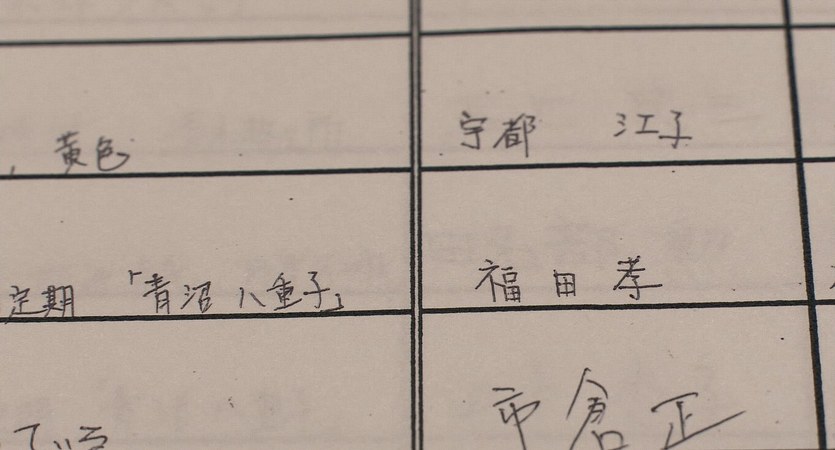 黄色 宇都 江子
定期 「青沼八重子」 福田孝
市倉正